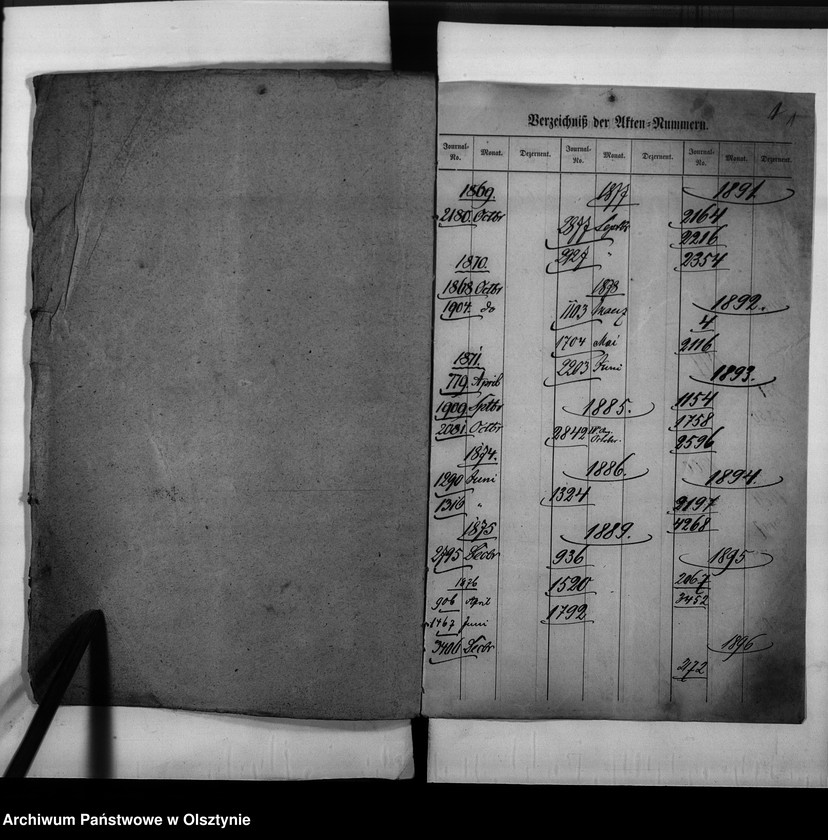 Verzeichniß der Akten-Nummern.
Journal-No. Monat. Dezernent. Journal-No. Monat. Dezernent. Journal-No. Monat. Dezernent.
1869.
2180. Octbr
1870.
1868 Octbr
1904. do
1871.
779. April
1909. Septbr
2081. Octbr
1874.
1290 Juni
1316 "
1875
2795 Decbr
1876
906 April
1467 Juni
3406 Decbr
1877
2877 Septbr
2727 "
1878
1103 Maerz
1704 Mai
2203 Juni
1885.
2842
October.
1886.
1324
1889.
936
1520
1792
1891.
2164
2216
2354
1892.
4
2116
1893.
1154
1758
2596
1894.
2197
4268
1895
2067
3452
1896
272
Archiwum Państwowe w Olsztynie